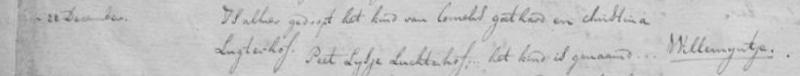 22 December. Is alhier gedoopt het kind van Cornelis Gothard en Christina
Lugtenhof. Peet Lijsje Luchtenhof... het kind is genaamd... Willemyntje.